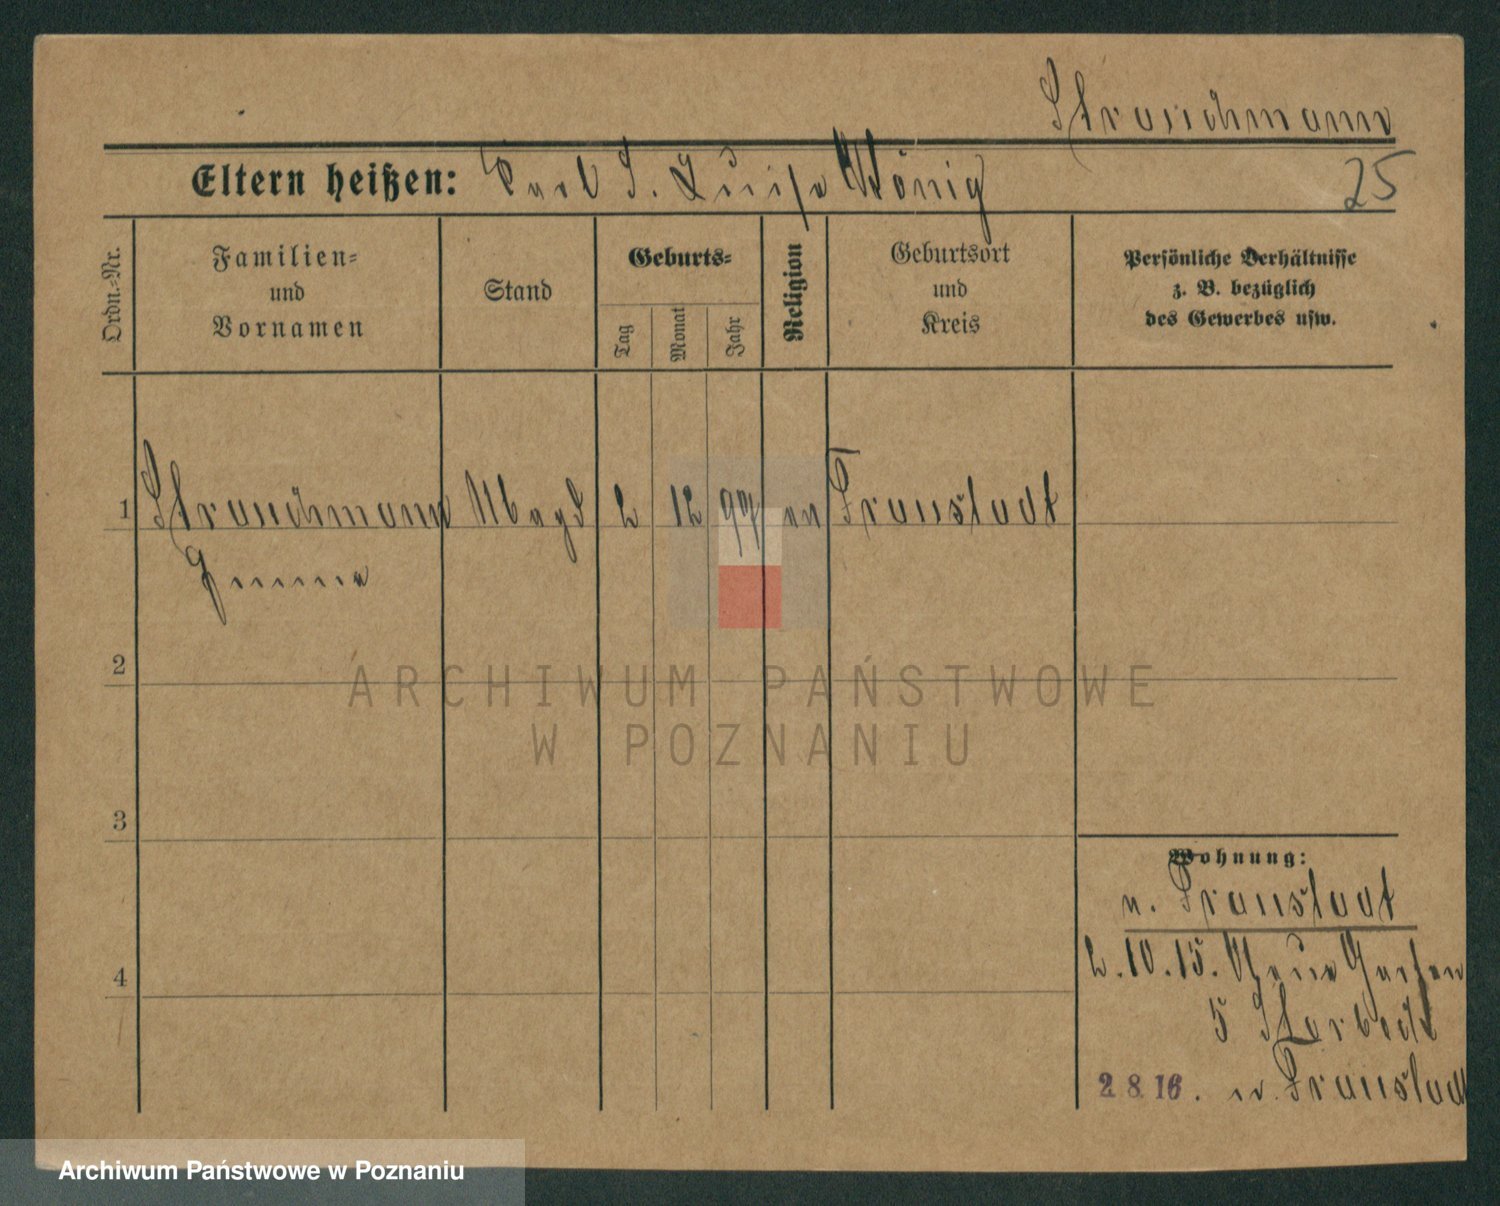 Strauchmann
Eltern heißen: Karl S. Luise König 25
Ordn.-Nr.
Familien-
und
Vornamen
Stand
Geburts-
Tag
Monat
Jahr
Religion
Geburtsort
und
Kreis
Persönliche Verhältnisse
z. B. bezüglich
des Gewerbes usw.
1 Strauchmann Magd 2 12 97 ev Fraustadt
Emma
2
ARCHIWUM PAŃSTWOWE
W POZNANIU
3
Wohnung:
v. Fraustadt
4
2.10.15. Neue Garten
5 Storbeck
2.8.16. n. Fraustadt
Archiwum Państwowe w Poznaniu